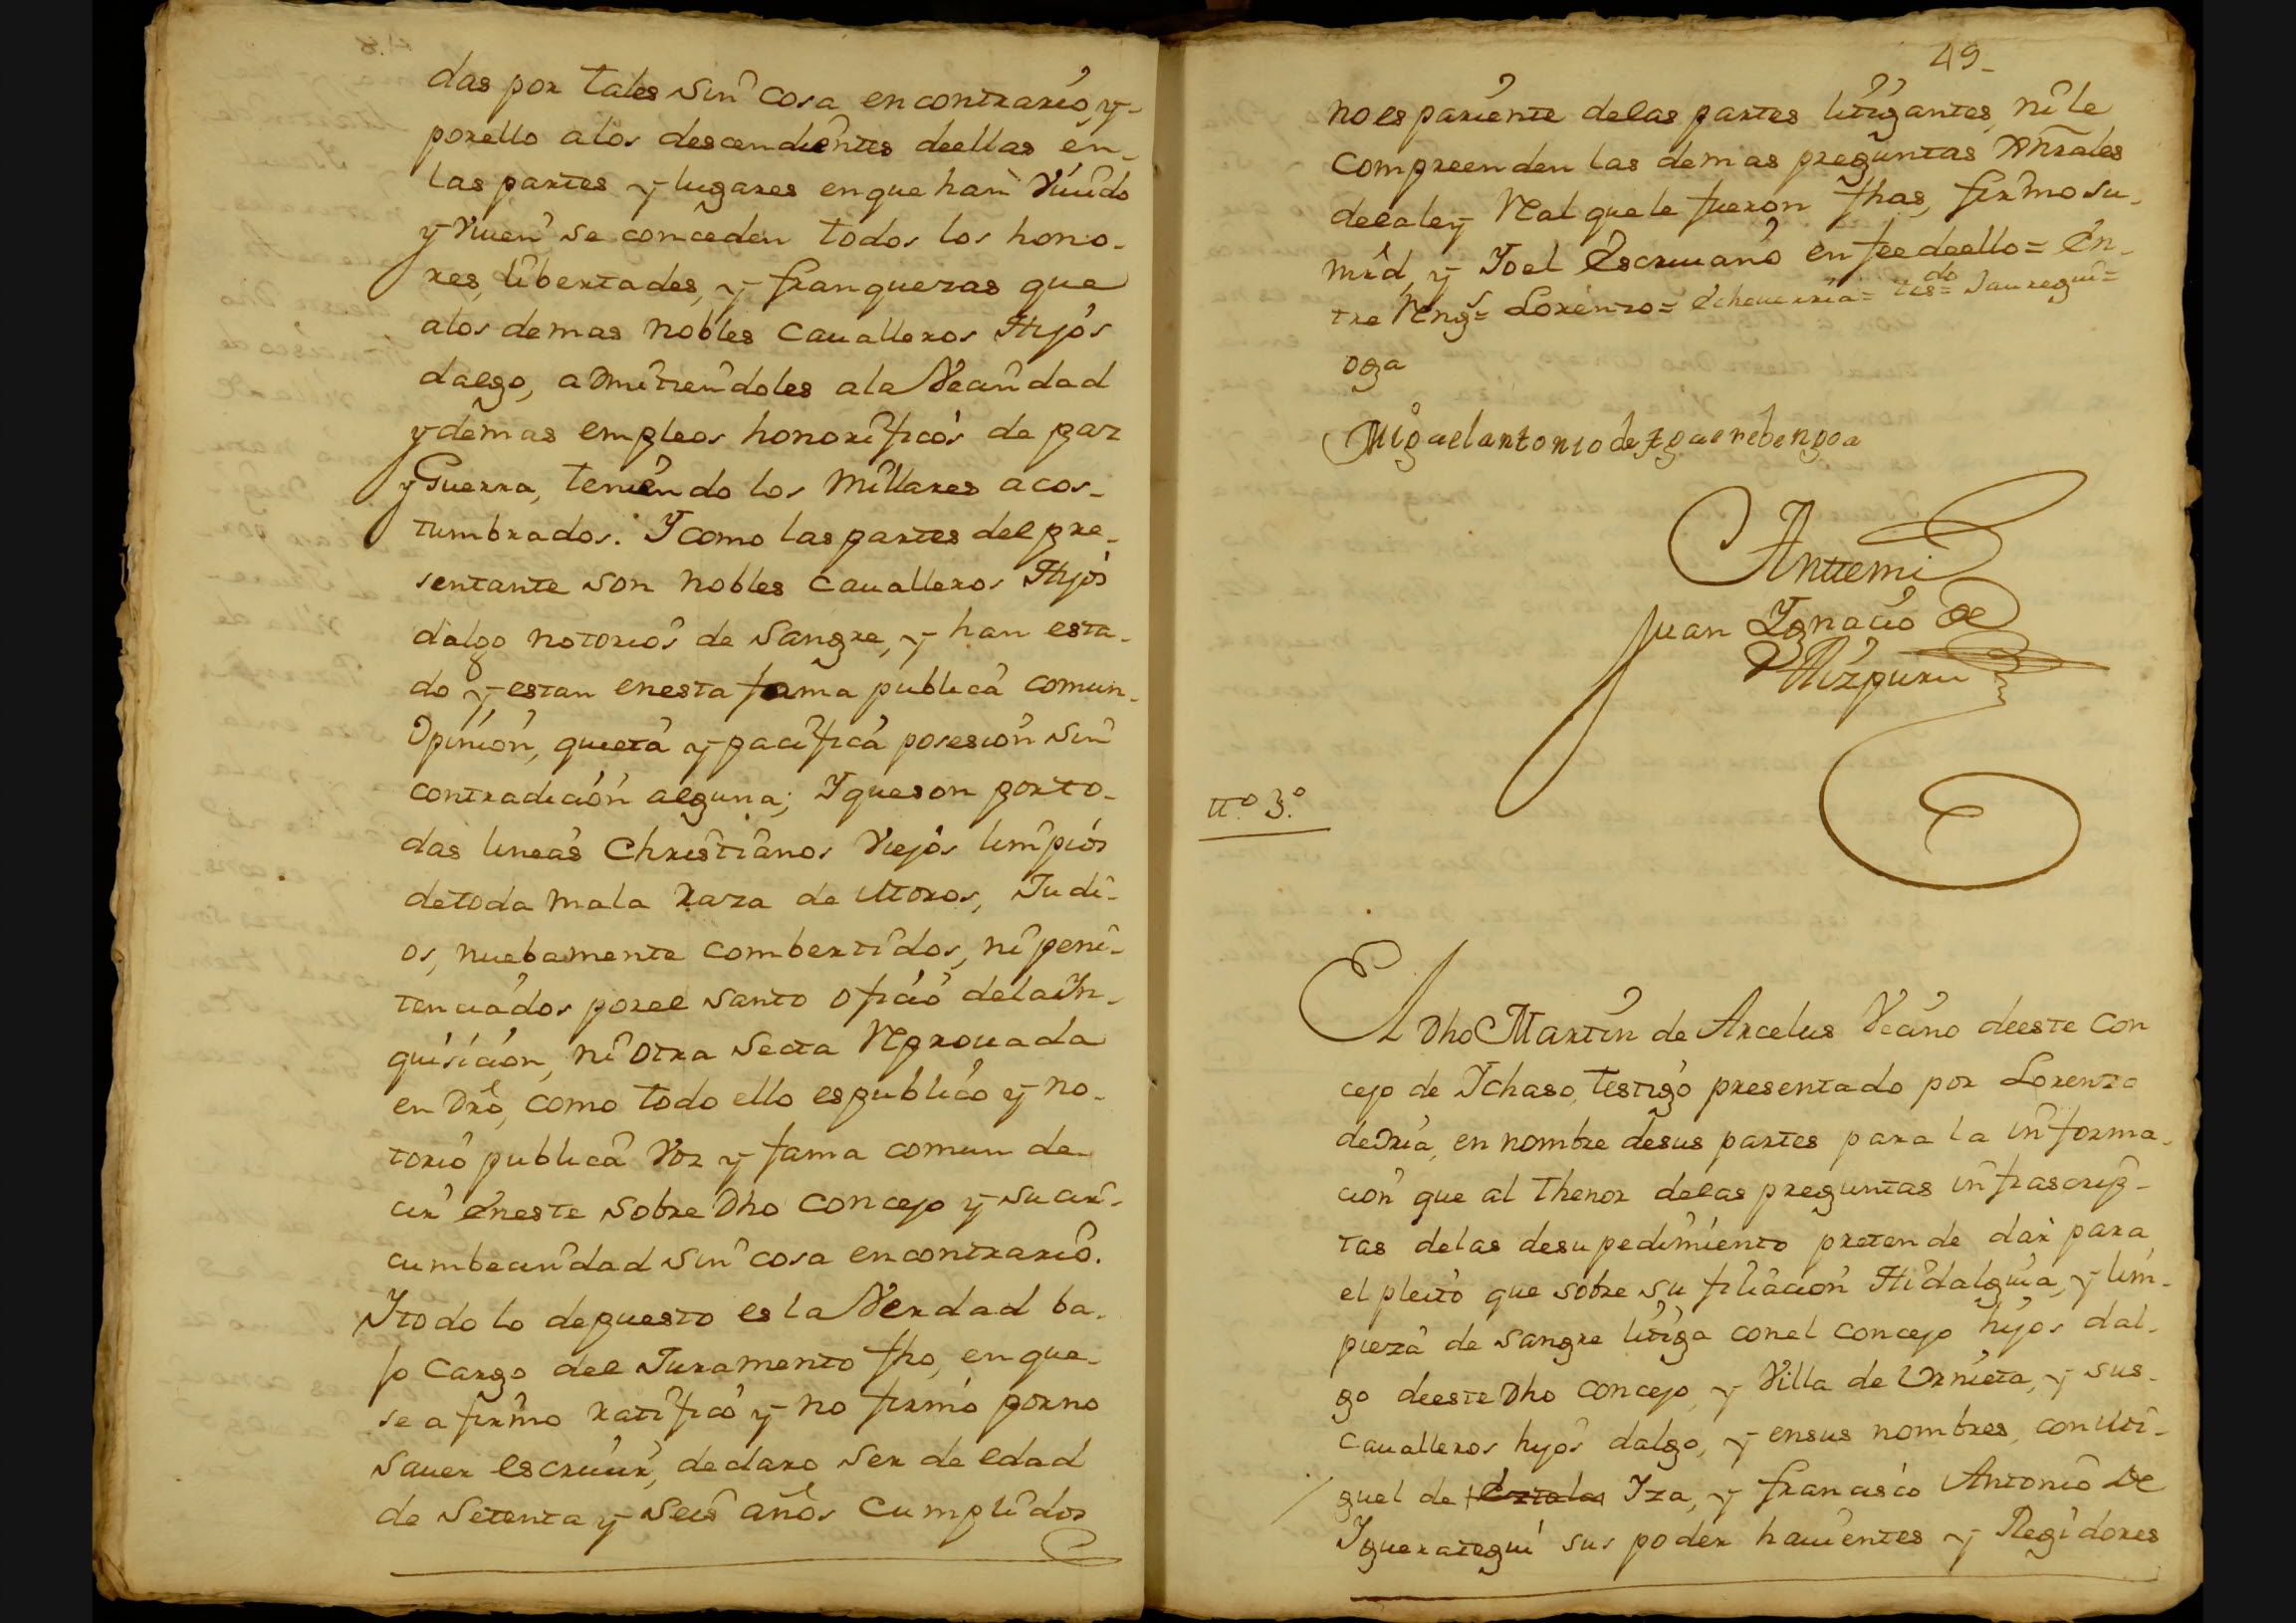 das por tales sin cosa encontrario, y
porello alos descendientes deellas en
las partes y lugares enque han Viuido
y viuen se conceden todos los hono-
res, libertades, y franquezas que
alos demas nobles Caualleros Hijos
dalgo, admitiendoles ala Vecindad
y demas empleos honorificos de paz
y Guerra, teniendo los Millares acos-
tumbrados. Y como las partes del pre-
sentante son nobles Caualleros Hijos
dalgo notorios de Sangre, y han esta-
do y estan enesta fama publica comun
Opinion, quieta y pacifica posesion sin
contradicion alguna; Y queson porto-
das lineas Christianos Viejos limpios
detoda mala Raza de Moros, Judi-
os, nuebamente combertidos, ni peni-
tenciados porel Santo oficio delaIn-
quisicion, ni otra Secta Reprouada
en Dro, como todo ello espublico y no-
torio publica Voz y fama comun de-
cir eneste sobre Dho Concejo y sucir-
cumbecindad sin cosa encontrario.
Y todo lo depuesto es la Verdad ba-
jo Cargo del Juramento fho, enque
se afirmo ratifico y no firmó porno
sauer escriuir, declaro ser de edad
de Setenta y Seis años Cumplidos
49-
noes pariente delas partes litigantes, nile
compreenden las demas preguntas Gnrales
delaley Real quele fueron fhas, firmo su
mrd, y Yoel Escriuano enfee deello = En-
tre Rengs = Lorenzo = Echeuerria = tdo = Jauregui =
oga
Miguel antonio de Yguerebengoa
Anttemi
Juan Ygnacio de
Aizpuru
tt.º 3.º
El Dho Martin de Arcelus Vecino deeste Con
cejo de Ychaso, testigo presentado por Lorenzo
deOria, en nombre desus partes para la informa-
cion que al thenor delas preguntas infrascrip-
tas delas desupedimiento pretende dar para
el pleito que sobre su filiacion Hidalguia, y lim-
pieza de sangre litiga conel Concejo hijos dal-
go deeste Dho Concejo, y Villa de Urnieta, y sus
Caualleros hijos dalgo, y ensus nombres, con Mi-
guel de Yza, y francisco Antonio de
Yguerategui sus poder hauientes y Regidores